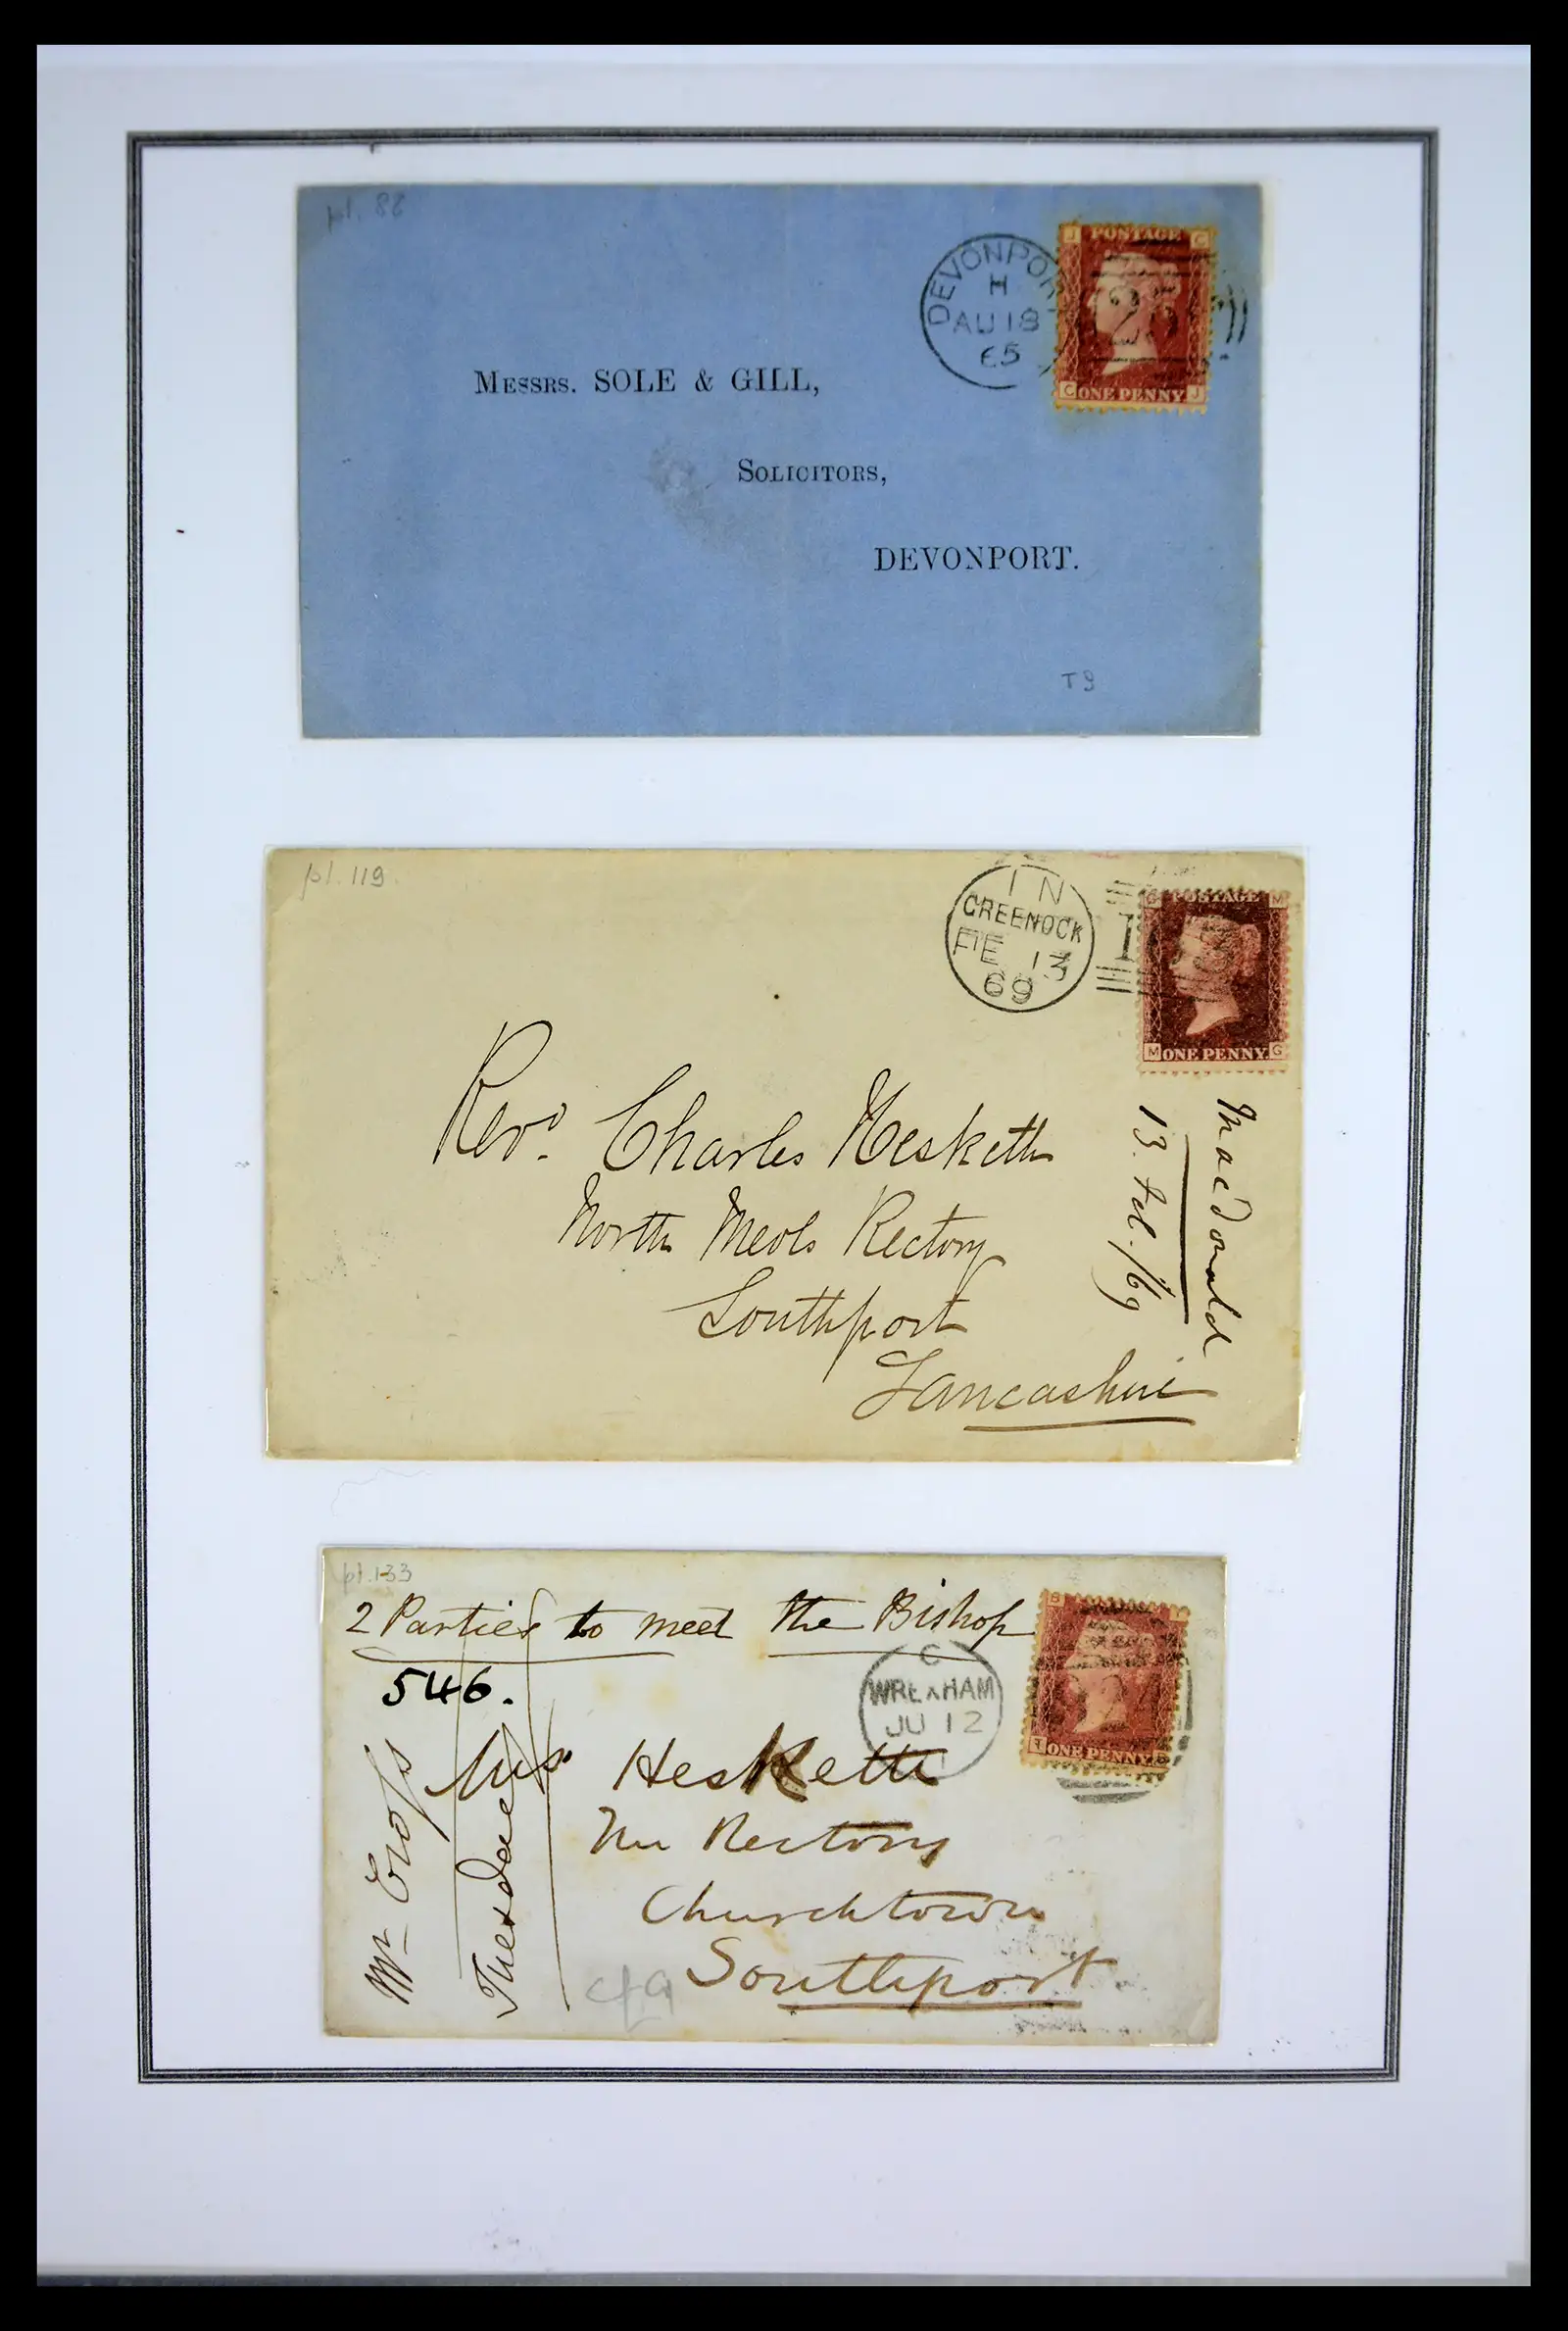 pl. 82
DEVONPOR
H
AU 18
65
J POSTAGE C
C ONE PENNY J
MESSRS. SOLE & GILL,
SOLICITORS,
DEVONPORT.
T9
pl. 119
1 N
GREENOCK
FE 13
69
G POSTAGE M
M ONE PENNY G
Revd. Charles Hesketh
North Meols Rectory
Southport
Lancashire
MacDonald
13. Feb. /69
pl. 133
2 Parties to meet the Bishop
546.
C
WREXHAM
JU 12
ONE PENNY
Mrs Hesketh
The Rectory
Churchtown
Southport
Mr Cross
Tuesdae